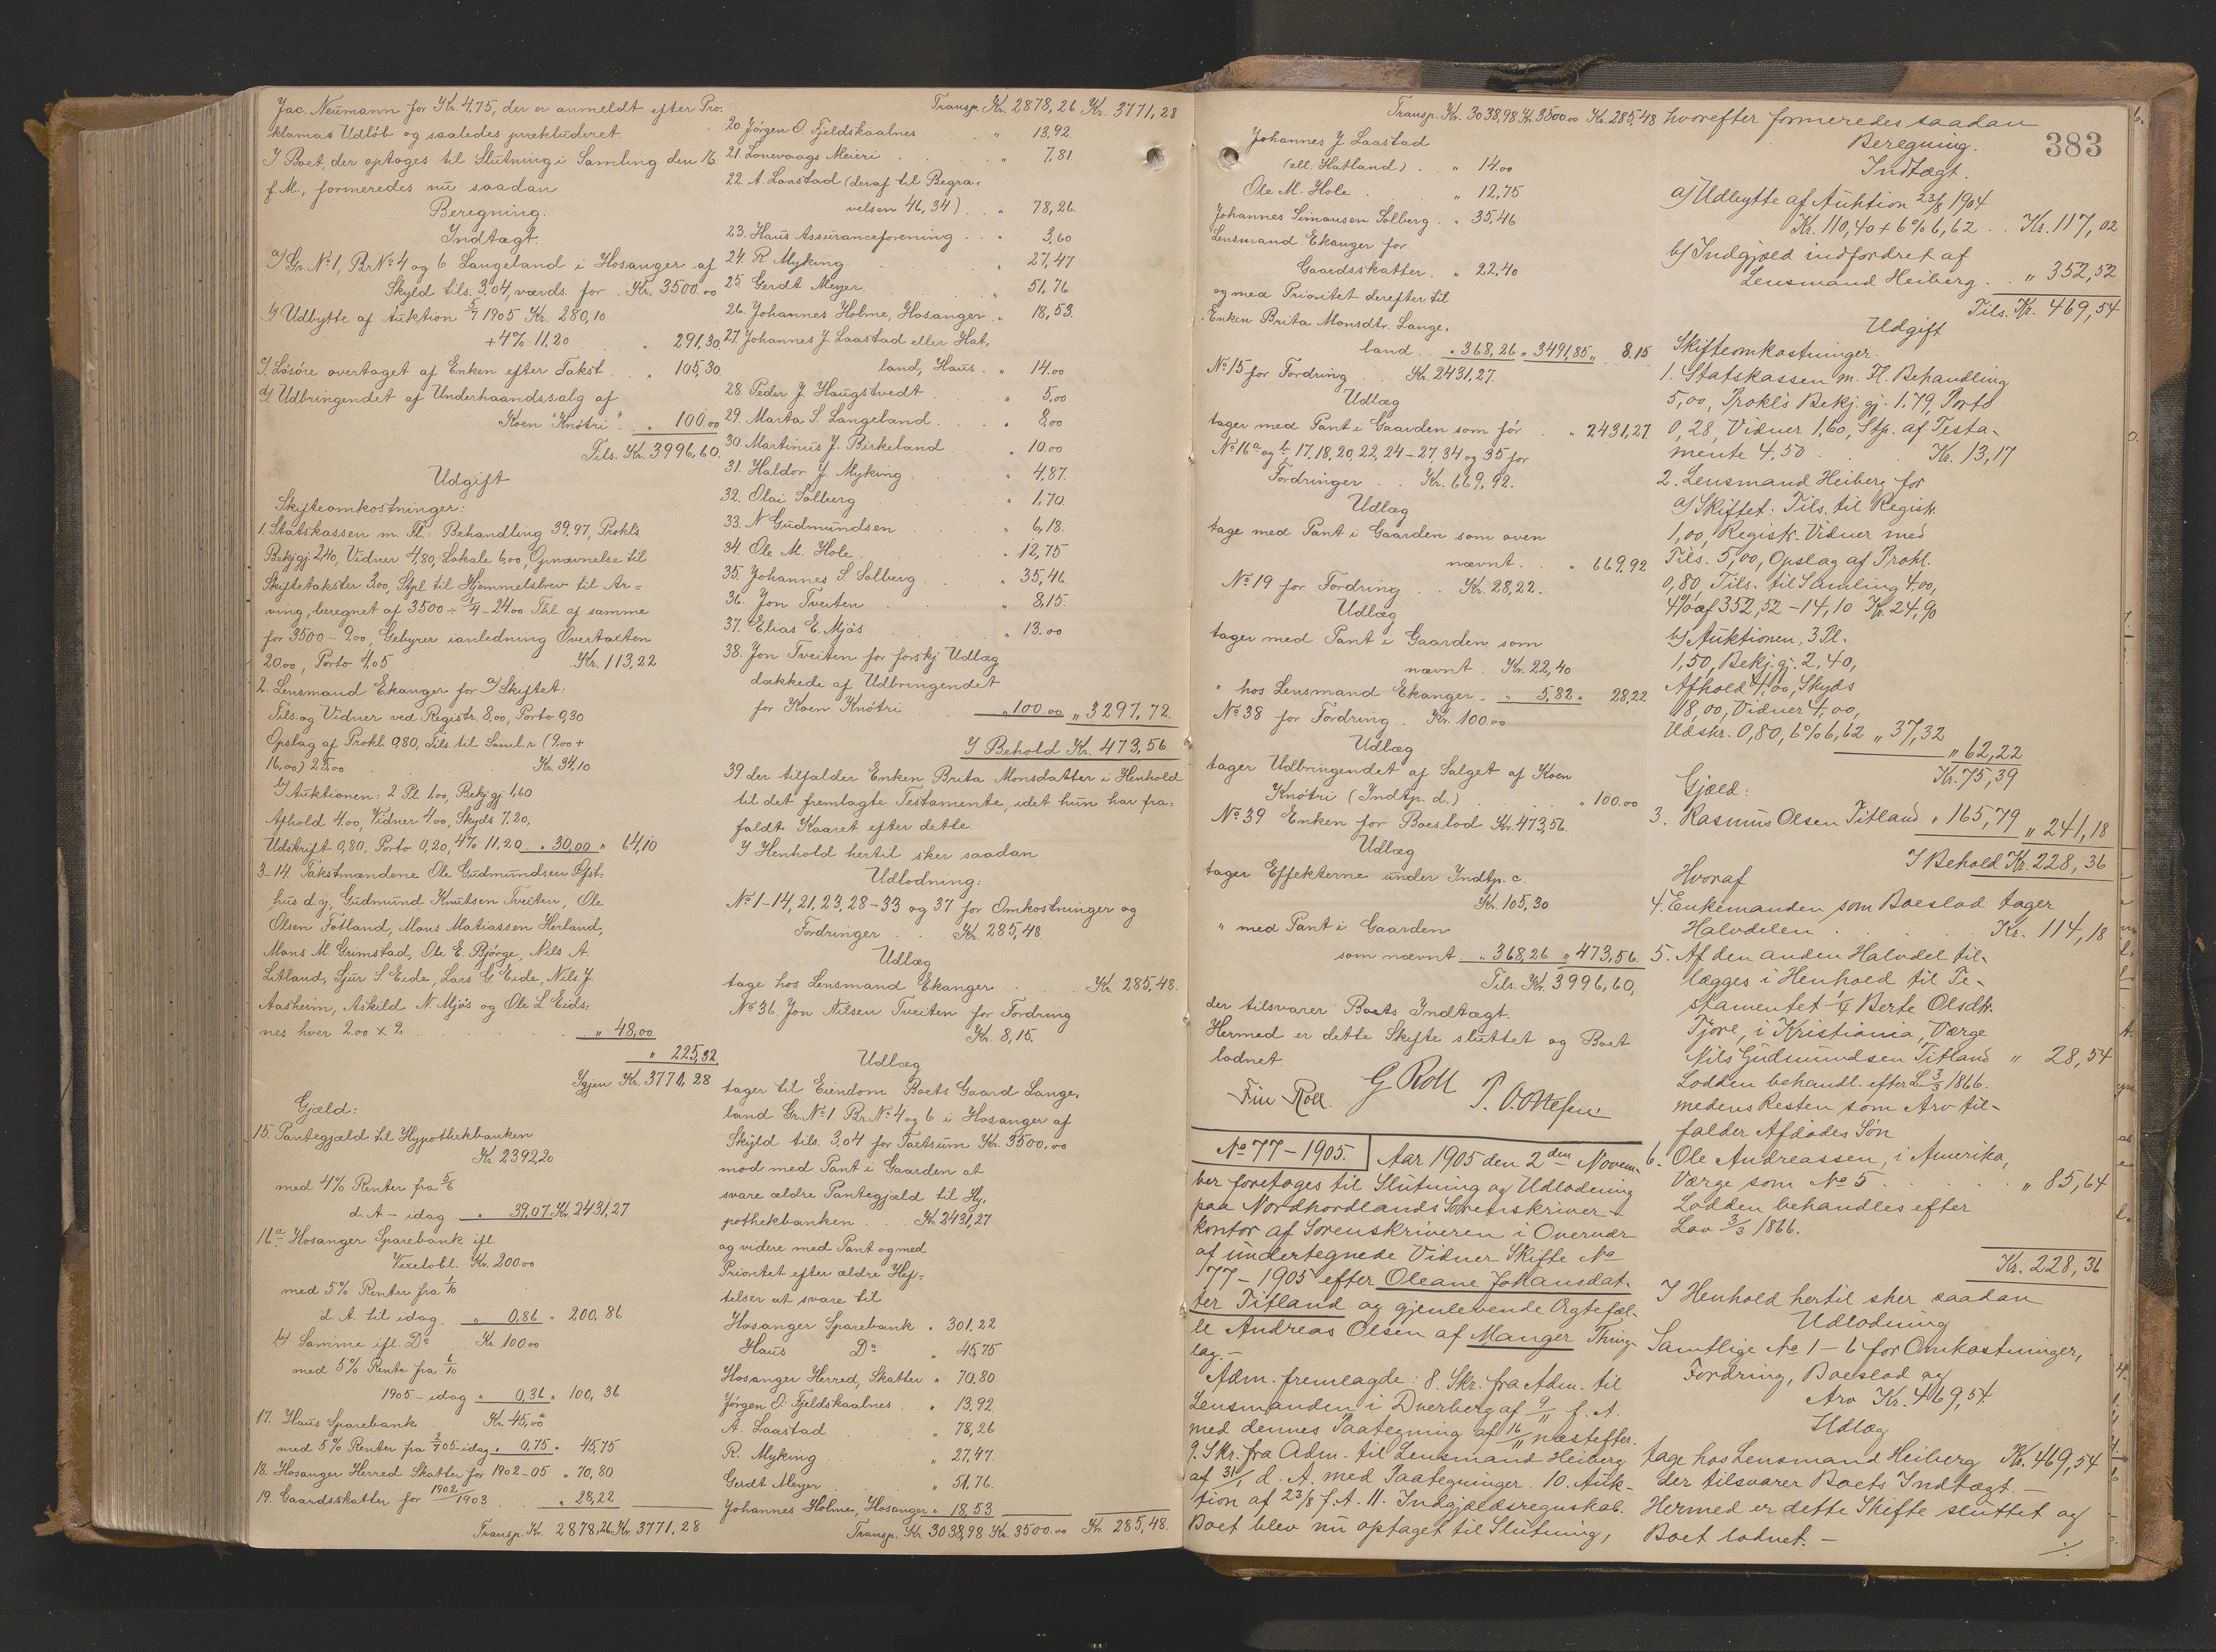 Jac. Neumann for Kr. 4,75, der er anmeldt efter Pro-
klamas Udløb og saaledes prækluderet.
I Boet, der optoges til Slutning i Samling den 16
f. M., formeredes nu saadan
Beregning.
Indtægt.
a) Gr. No 1, Br No 4 og 6 Langeland i Hosanger af
Skyld tils. 3,04, værds. for . Kr. 3500.00
b) Udbytte af Auktion 5/7 1905 Kr. 280,10
+ 4% 11,20 . . " 291,30
c) Løsøre overtaget af Enken efter Takst . . " 105,30
d) Udbringendet af Underhaandssalg af
Koen "Knøtri" . " 100.00
Tils. Kr. 3996,60.
Udgift
Skifteomkostninger:
1. Statskassen m. Fl.: Behandling 39,97, Prokl's
Bekj.gj. 2,40, Vidner 4,80, Lokale 6,00, Opnævnelse til
Skiftetakster 2,00, Stpl. til Hjemmelsbrev til Ar=
ving, beregnet af 3500 ÷ 1/4 - 24.00 Thl. af samme
for 3500 - 9.00, Gebyrer ianledning Overtaxten
20.00, Porto 4,05 . Kr. 113,22
2. Lensmand Ekanger for a) Skiftet:
Tils. og Vidner ved Registr. 8,00, Porto 0,30
Opslag af Prokl. 0,80, Tils. til Saml.r (9.00 +
16,00) 25.00 . Kr. 34,10
b) Auktionen: 2 Pl. 1.00, Bekj.gj. 1,60
Afhold 4.00, Vidner 4.00, Skyds 7.20,
Udskrift 0,80, Porto 0,20, 4% 11,20 " 30,00 " 64,10
3-14. Takstmændene Ole Gudmundsen Øfst-
hus d.y., Gudmund Knutsen Tveiten, Ole
Olsen Fotland, Mons Matiassen Herland,
Mons M. Grimstad, Ole E. Bjørge, Nils A.
Litland, Sjur S. Eide, Lars G. Eide, Nils J.
Aasheim, Askild N. Mjøs og Ole L. Eids-
nes hver 2.00 x 2 . . " 48,00
" 225,32
Igjen Kr. 3771,28
Gjæld:
15. Pantegjæld til Hypothekbanken
Kr. 2392,20
med 4% Renter fra 5/6
d. A - idag . " 39,07 Kr. 2431,27
16 a. Hosanger Sparebank ifl.
Vexelobl. Kr. 200.00
med 5% Renter fra 1/10
d. A. til idag. " 0,86 " 200,86
b) Samme ifl. Do Kr. 100.00
med 5% Rente fra 6/10
1905 - idag " 0,36 " 100,36
17. Haus Sparebank Kr. 45,00
med 5% Renter fra 2/7 05 - idag " 0,75 " 45,75
18. Hosanger Herred Skatter for 1902-05 " 70,80
19. Gaardsskatter for 1902/1903 . . " 28,22
Transp. Kr. 2878,26 Kr. 3771,28
Transp. Kr. 2878,26 Kr. 3771,28
20. Jørgen O. Fjeldskaalnes . " 13.92.
21. Lonevaags Meieri . . " 7,81.
22. A. Laastad (deraf til Begra-
velsen 46,34) . . " 78,26.
23. Haus Assuranceforening . . " 3,60
24. R. Myking . " 27,47
25. Gerdt Meyer . . " 51,76
26. Johannes Holme, Hosanger . " 18,53.
27. Johannes J. Laastad eller Hat-
land, Haus . " 14.00
28. Peder J. Haugstvedt . " 5,00
29. Marta S. Langeland . . " 8,00
30. Martinus J. Birkeland . . " 10.00
31. Haldor J. Myking . . " 4,87.
32. Olai Solberg . " 1,70.
33. N. Gudmundsen . . " 6,18.
34. Ole M. Hole . . " 12,75
35. Johannes S. Solberg . . " 35,46
36. Jon Tveiten . . " 8,15.
37. Elias E. Mjøs . . " 13.00
38. Jon Tveiten for forskj. Udlæg
dækkede af Udbringendet
for Koen Knøtri . " 100.00 " 3297,72.
I Behold Kr. 473,56
39. der tilfalder Enken Brita Monsdatter i Henhold
til det fremlagte Testamente, idet hun har fra-
faldt Kaaret efter dette.
I Henhold hertil sker saadan
Udlodning:
No 1-14, 21, 23, 28-33 og 37 for Omkostninger og
Fordringer . . Kr. 285,48.
Udlæg
tage hos Lensmand Ekanger . Kr. 285,48.
No 36. Jon Nilsen Tveiten for Fordring
Kr. 8,15.
Udlæg
tager til Eiendom Boets Gaard Lange-
land Gr. No 1 Br. No 4 og 6 i Hosanger af
Skyld tils. 3,04 for Taxtsum Kr. 3500,00
mod med Pant i Gaarden at
svare ældre Pantegjæld til Hy-
pothekbanken . . Kr. 2431,27
og videre med Pant og med
Prioritet efter ældre Hef-
telser at svare til
Hosanger Sparebank " 301,22
Haus Do " 45,75
Hosanger Herred, Skatter " 70,80
Jørgen O. Fjeldskaalnes . " 13,92.
A. Laastad . " 78,26
R. Myking . . " 27,47.
Gerdt Meyer . " 51,76.
Johannes Holme, Hosanger " 18,53
Transp. Kr. 3038,98 Kr. 3500.00 Kr. 285,48.
Transp. Kr. 3038,98 Kr. 3500.00 Kr. 285,48
Johannes J. Laastad
(ell. Hatland) . . " 14.00
Ole M. Hole . " 12,75
Johannes Simonsen Solberg . " 35,46
Lensmand Ekanger for
Gaardsskatter . " 22,40
og med Prioritet derefter til
Enken Brita Monsdtr. Lange-
land . . " 368,26 " 3491,85 " 8.15
No 15 for Fordring . Kr. 2431,27.
Udlæg
tager med Pant i Gaarden som før . " 2431,27
No 16 a og b, 17, 18, 20, 22, 24-27, 34 og 35 for
Fordringer . . Kr. 669,92.
Udlæg
tage med Pant i Gaarden som oven
nævnt . . " 669,92
No 19 for Fordring . . Kr. 28,22.
Udlæg
tager med Pant i Gaarden som
nævnt . Kr. 22,40
" hos Lensmand Ekanger . " 5,82 " 28,22
No 38 for Fordring . Kr. 100.00
Udlæg
tager Udbringendet af Salget af Koen
Knøtri (Indtp. d.) . . " 100.00
No 39 Enken for Boeslod Kr. 473,56.
Udlæg
tager Effekterne under Indtp. c.
Kr. 105,30
" med Pant i Gaarden
som nævnt " 368,26 " 473,56.
Tils. Kr. 3996,60,
der tilsvarer Boets Indtægt.
Hermed er dette Skifte sluttet og Boet
lodnet.
Fin Roll. G Roll P. O. Ottesen.
No 77 - 1905. Aar 1905 den 2den Novem-
ber foretoges til Slutning og Udlodning
paa Nordhordlands Sorenskriver-
kontor af Sorenskriveren i Overvær
af undertegnede Vidner Skifte No
77 - 1905 efter Oleane Johansdat-
ter Titland og gjenlevende Ægtefæl-
le Andreas Olsen af Manger Thing-
lag. -
Adm. fremlagde: 8. Skr. fra Adm. til
Lensmanden i Dverberg af 9/11 f. A.
med dennes Paategning af 16/11 næstefter.
9. Skr. fra Adm. til Lensmand Heiberg
af 31/1 d. A. med Paategninger. 10. Auk-
tion af 23/8 f. A. 11. Indgjældsregnskab.
Boet blev nu optaget til Slutning,
383
hvorefter formeredes saadan
Beregning.
Indtægt.
a) Udbytte af Auktion 23/8 1904
Kr. 110,40 + 6% 6,62 . . Kr. 117,02
b) Indgjæld indfordret af
Lensmand Heiberg . . " 352,52
Tils. Kr. 469,54
Udgift
Skifteomkostninger.
1. Statskassen m. Fl. Behandling
5,00, Prokl's Bekj.gj. 1.79, Porto
0,28, Vidner 1,60, Stp. af Testa-
mente 4,50 . . Kr. 13,17
2. Lensmand Heiberg for
a) Skiftet: Tils. til Registr.
1,00, Registr. Vidner med
Tils. 5,00, Opslag af Prokl.
0,80, Tils. til Samling 4,00,
4% af 352,52 - 14,10 Kr. 24,90
b) Auktionen, 3 Pl.
1,50, Bekj.gj. 2,40,
Afhold 4,00, Skyds
18,00, Vidner 4,00,
Udskr. 0,80, 6% 6,62 " 37,32
" 62,22
Kr. 75,39
Gjæld:
3. Rasmus Olsen Titland " 165,79 " 241,18
I Behold Kr. 228,36
Hvoraf
4. Enkemanden som Boeslod tager
Halvdelen . . Kr. 114,18
5. Af den anden Halvdel til-
lægges i Henhold til Te-
stamentet 1/4 Berte Olsdtr.
Tjore, i Kristiania, Værge
Nils Gudmundsen Titland " 28,54
Lodden behandl. efter L. 3/3 1866.
medens Resten som Arv til-
falder Afdødes Søn
6. Ole Andreassen, i Amerika,
Værge som No 5 . . " 85,64
Lodden behandles efter
Lov 3/3 1866.
Kr. 228,36
I Henhold hertil sker saadan
Udlodning
Samtlige No 1 - 6 for Omkostninger,
Fordring, Boeslod og
Arv Kr. 469,54.
Udlæg
tage hos Lensmand Heiberg Kr. 469,54
der tilsvarer Boets Indtægt. -
Hermed er dette Skifte sluttet og
Boet lodnet. -